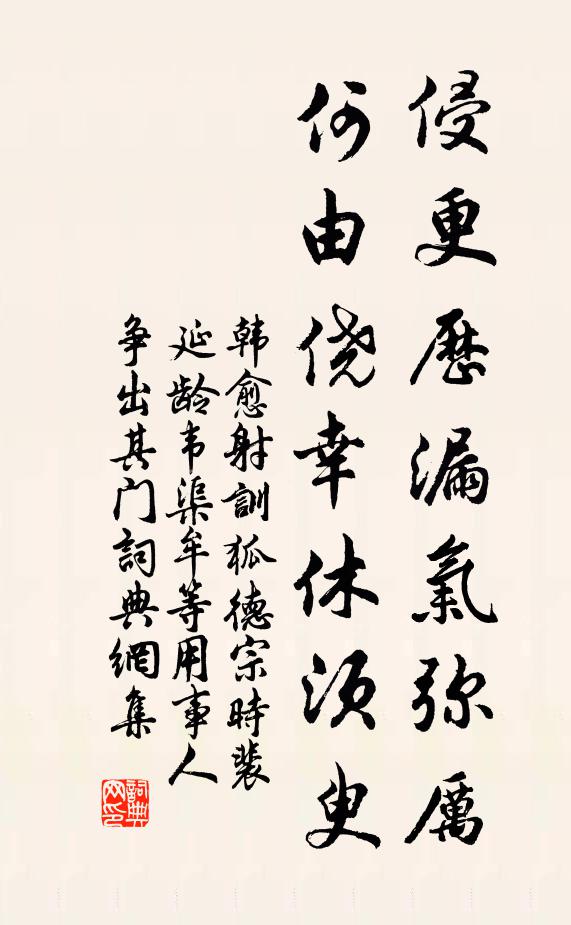 侵更歷漏氣弥厲
何由侥幸休須臾
韩愈射訓狐德宗時裴
延龄韦渠牟等用事人
争出其门詞典網集
詞典网印